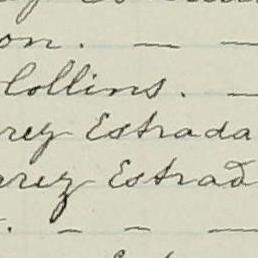 on. — —
Collins. —
rez Estrada
arez Estrad
. – – —